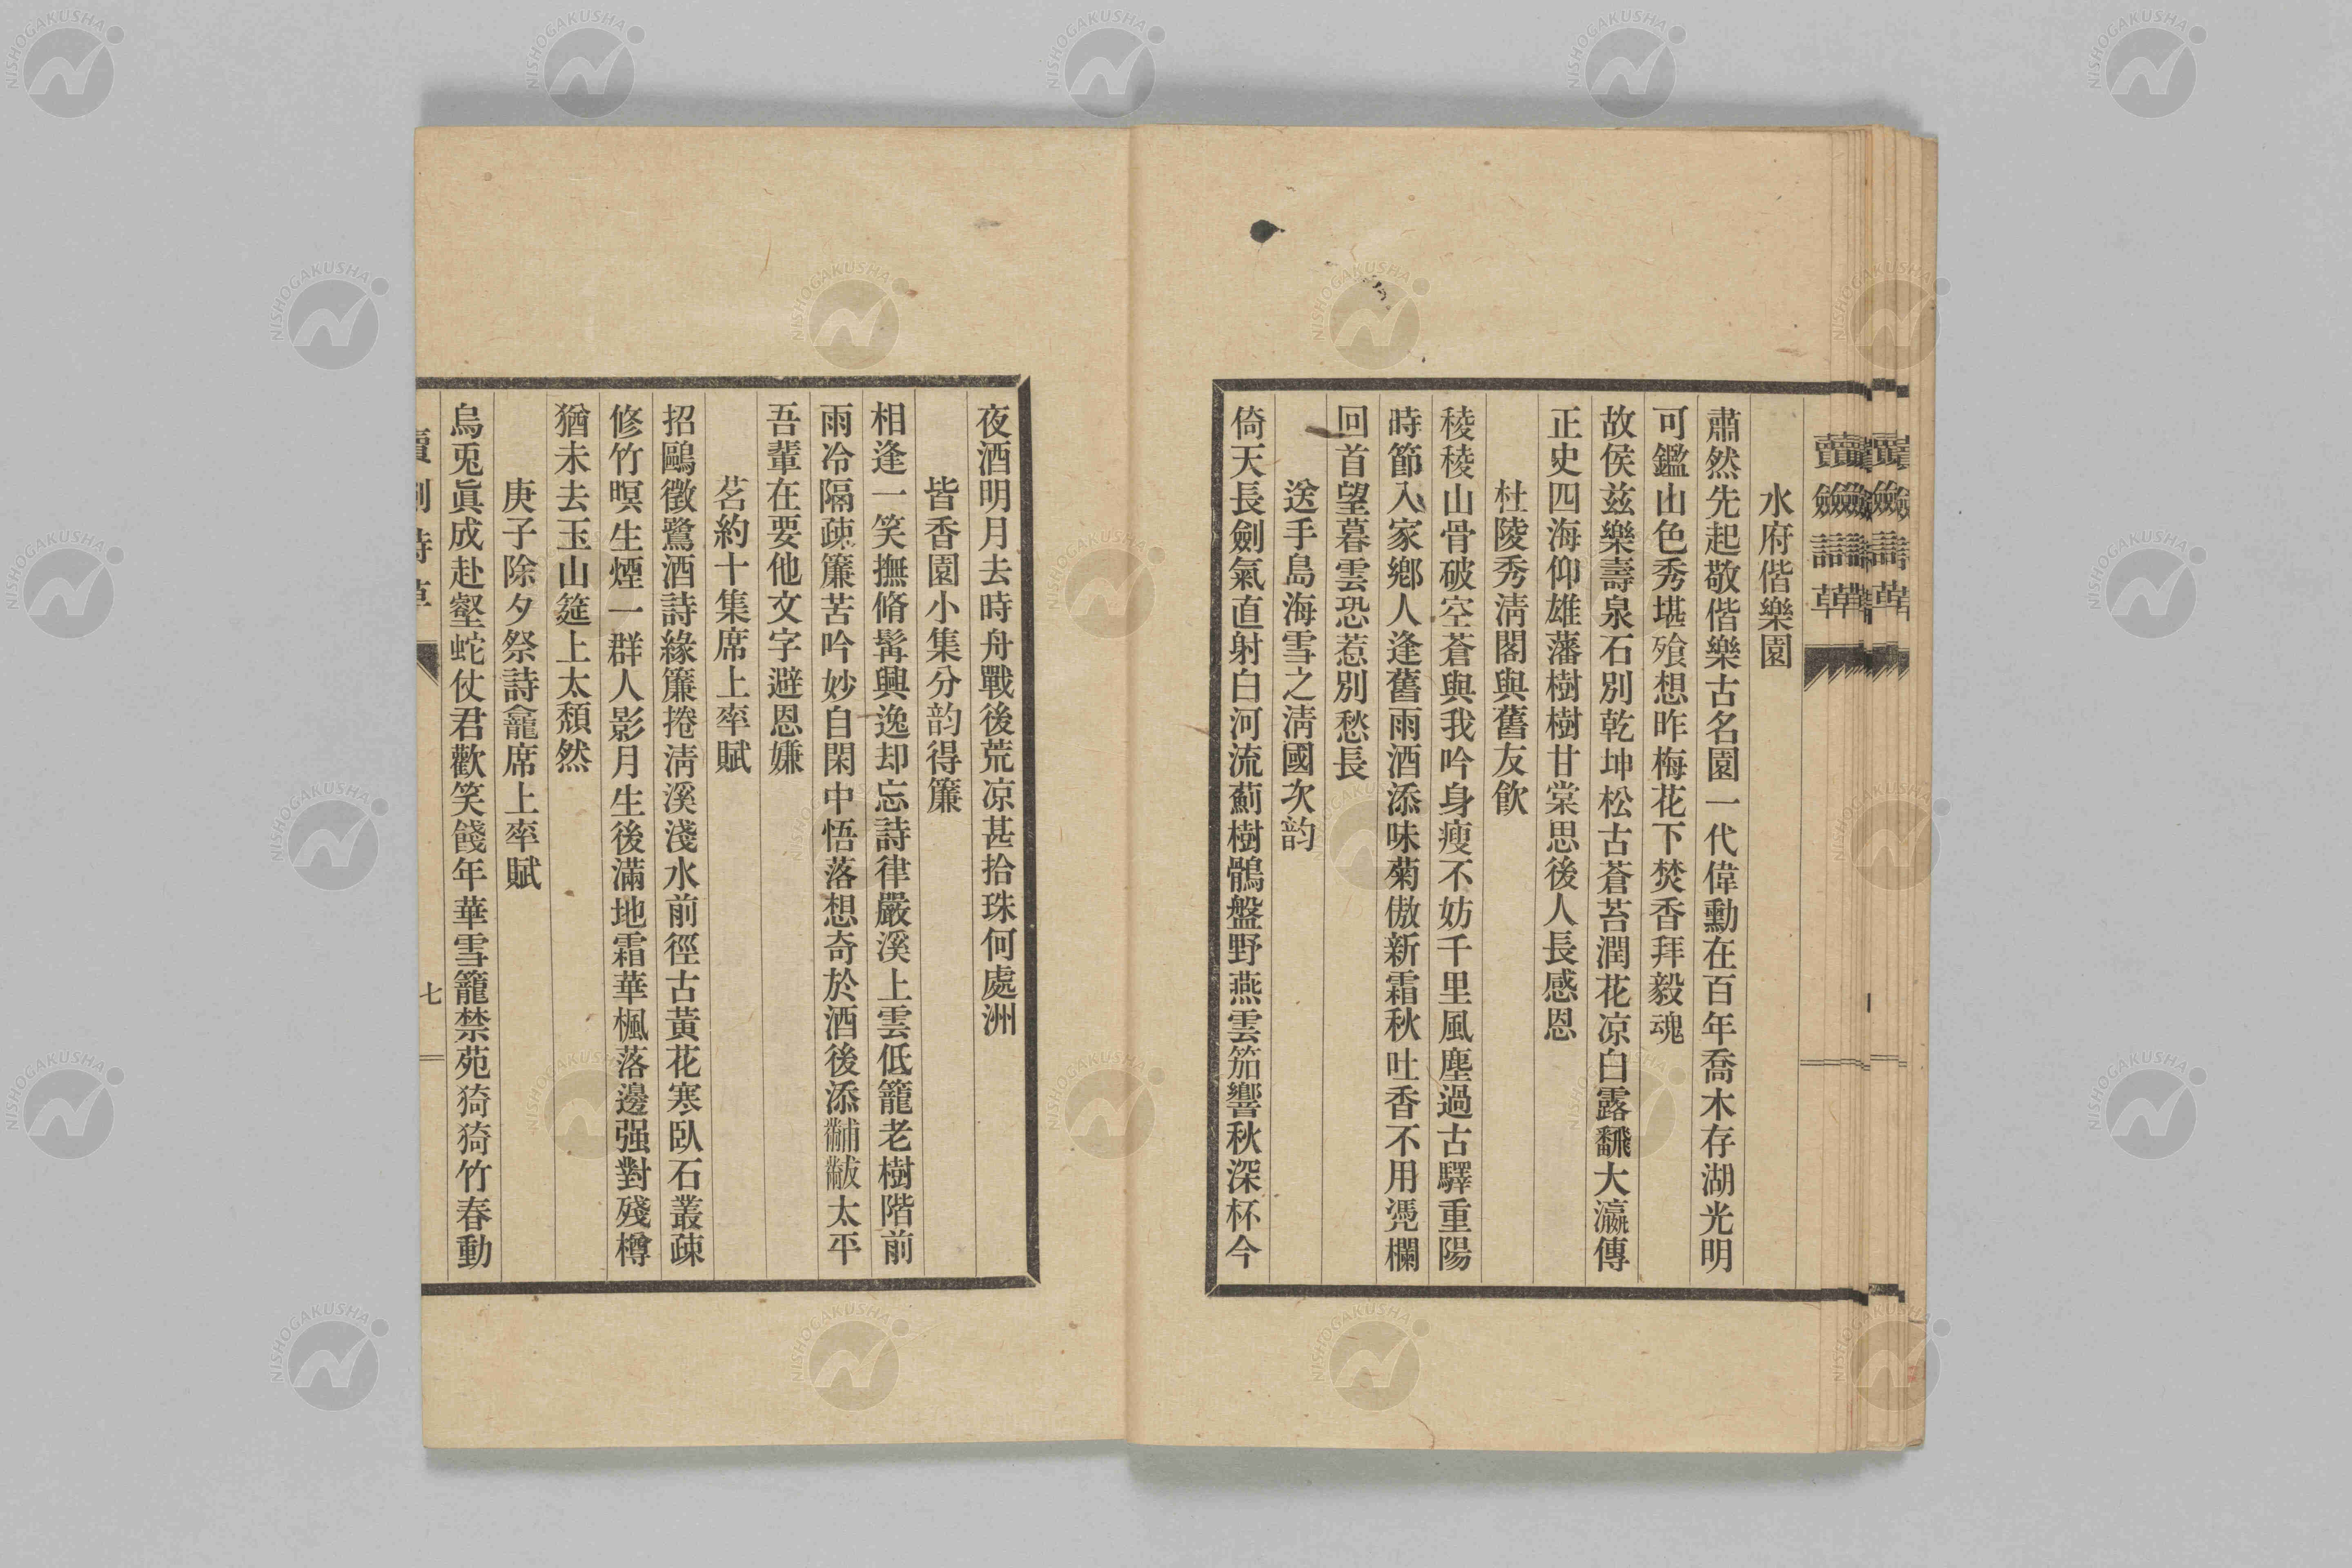 賣劍詩草
水府偕樂園
肅然先起敬偕樂古名園一代偉勳在百年喬木存湖光明
可鑑山色秀堪飱想昨梅花下焚香拜毅魂
故侯玆樂壽泉石別乾坤松古蒼苔潤花凉白露飜大瀛傳
正史四海仰雄藩樹樹甘棠思後人長感恩
杜陵秀淸閣與舊友飮
稜稜山骨破空蒼與我吟身瘦不妨千里風塵過古驛重陽
時節入家鄕人逢舊雨酒添味菊傲新霜秋吐香不用凭欄
回首望暮雲恐惹別愁長
送手島海雪之淸國次韵
倚天長劍氣直射白河流薊樹鶻盤野燕雲笳響秋深杯今
夜酒明月去時舟戰後荒凉甚拾珠何處洲
皆香園小集分韵得簾
相逢一笑撫脩髯興逸却忘詩律嚴溪上雲低籠老樹階前
雨冷隔疎簾苦吟妙自閑中悟落想奇於酒後添黼黻太平
吾輩在要他文字避恩嫌
茗約十集席上率賦
招鷗徵鷺酒詩緣簾捲淸溪淺水前徑古黃花寒臥石叢疎
修竹暝生煙一群人影月生後滿地霜華楓落邊强對殘樽
猶未去玉山筵上太頹然
庚子除夕祭詩龕席上率賦
烏兎眞成赴壑蛇仗君歡笑餞年華雪籠禁苑猗猗竹春動
七